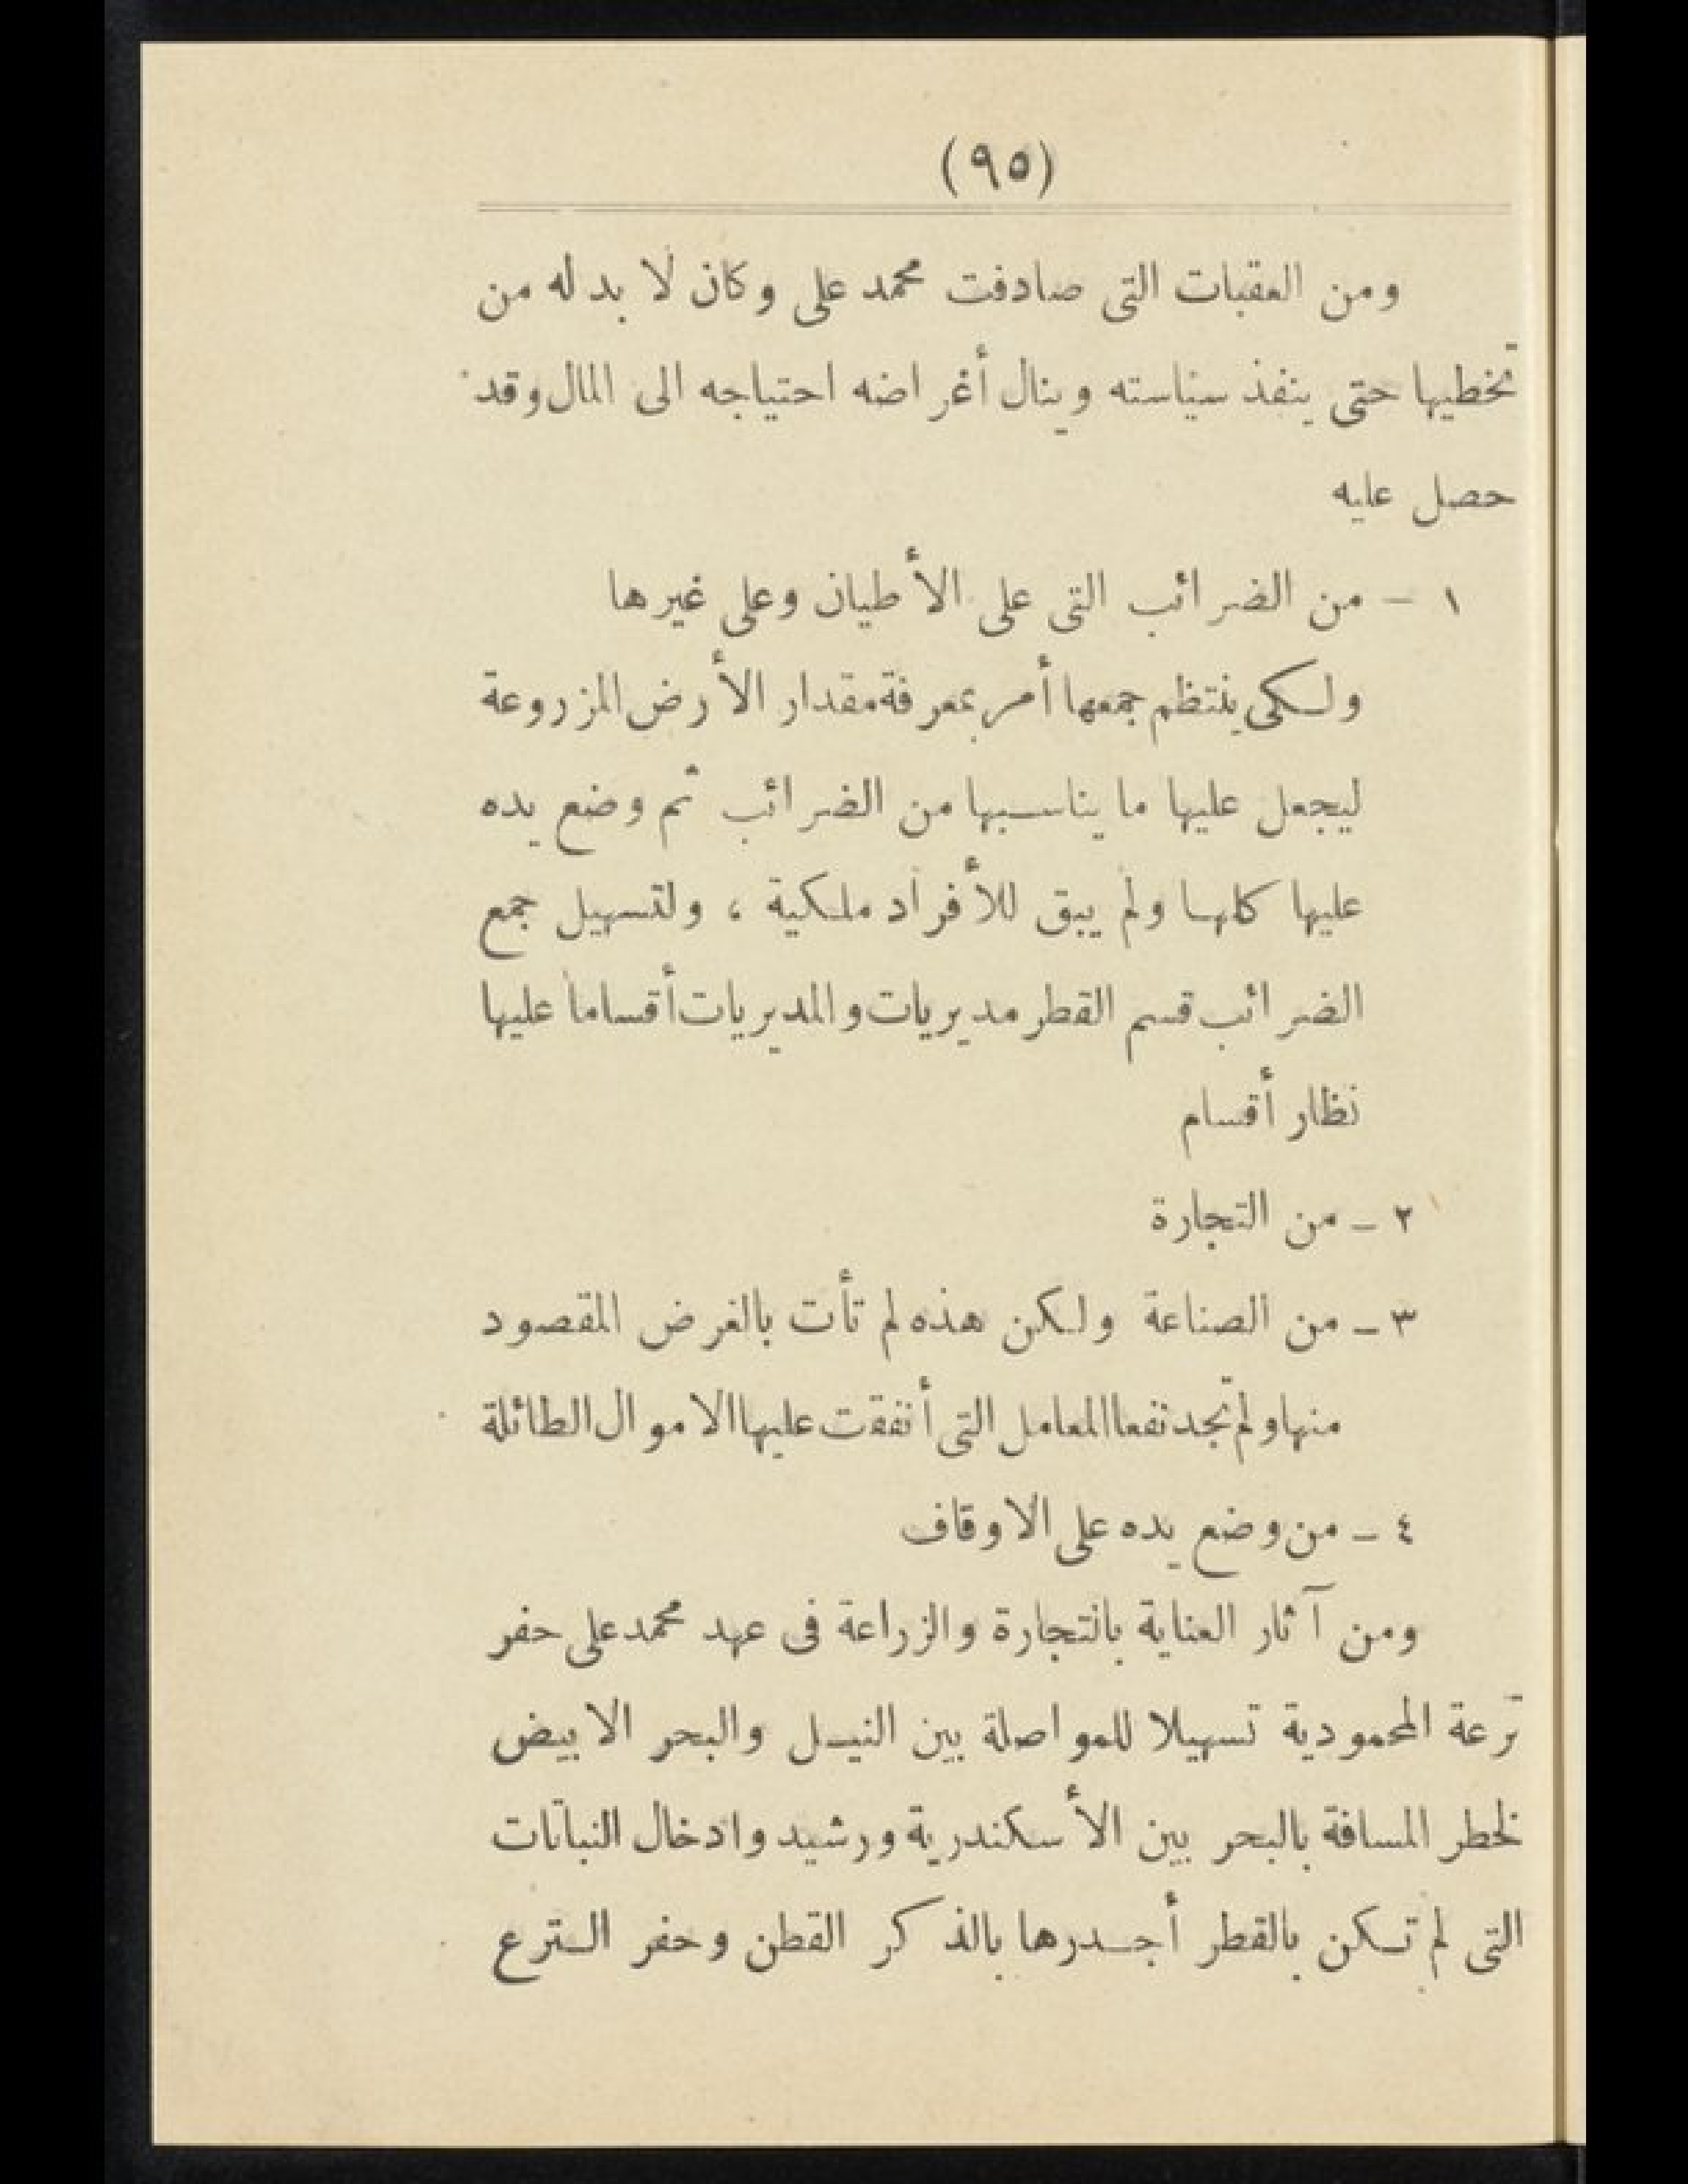 (٩٥)
ومن العقبات التى صادفت محمد على وكان لا بد له من
تخطيها حتى ينفذ سياسته وينال أغراضه احتياجه الى المال وقد
حصل عليه
١ – من الضرائب التى على الأطيان وعلى غيرها
ولكى ينتظم جمعها أمر بمعرفة مقدار الأرض المزروعة
ليجعل عليها ما يناسبها من الضرائب ثم وضع يده
عليها كلها ولم يبق للأفراد ملكية ، ولتسهيل جمع
الضرائب قسم القطر مديريات والمديريات أقساما عليها
نظار أقسام
٢ – من التجارة
٣ – من الصناعة ولكن هذه لم تأت بالغرض المقصود
منها ولم تجد نفعا المعامل التى أنفقت عليها الاموال الطائلة
٤ – من وضع يده على الاوقاف
ومن آثار العناية بالتجارة والزراعة فى عهد محمد على حفر
ترعة المحمودية تسهيلا للمواصلة بين النيل والبحر الابيض
لخطر المسافة بالبحر بين الأسكندرية ورشيد وادخال النباتات
التى لم تكن بالقطر أجدرها بالذكر القطن وحفر الترع